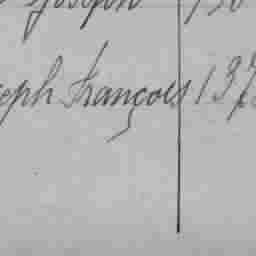 Joseph
eph François 137